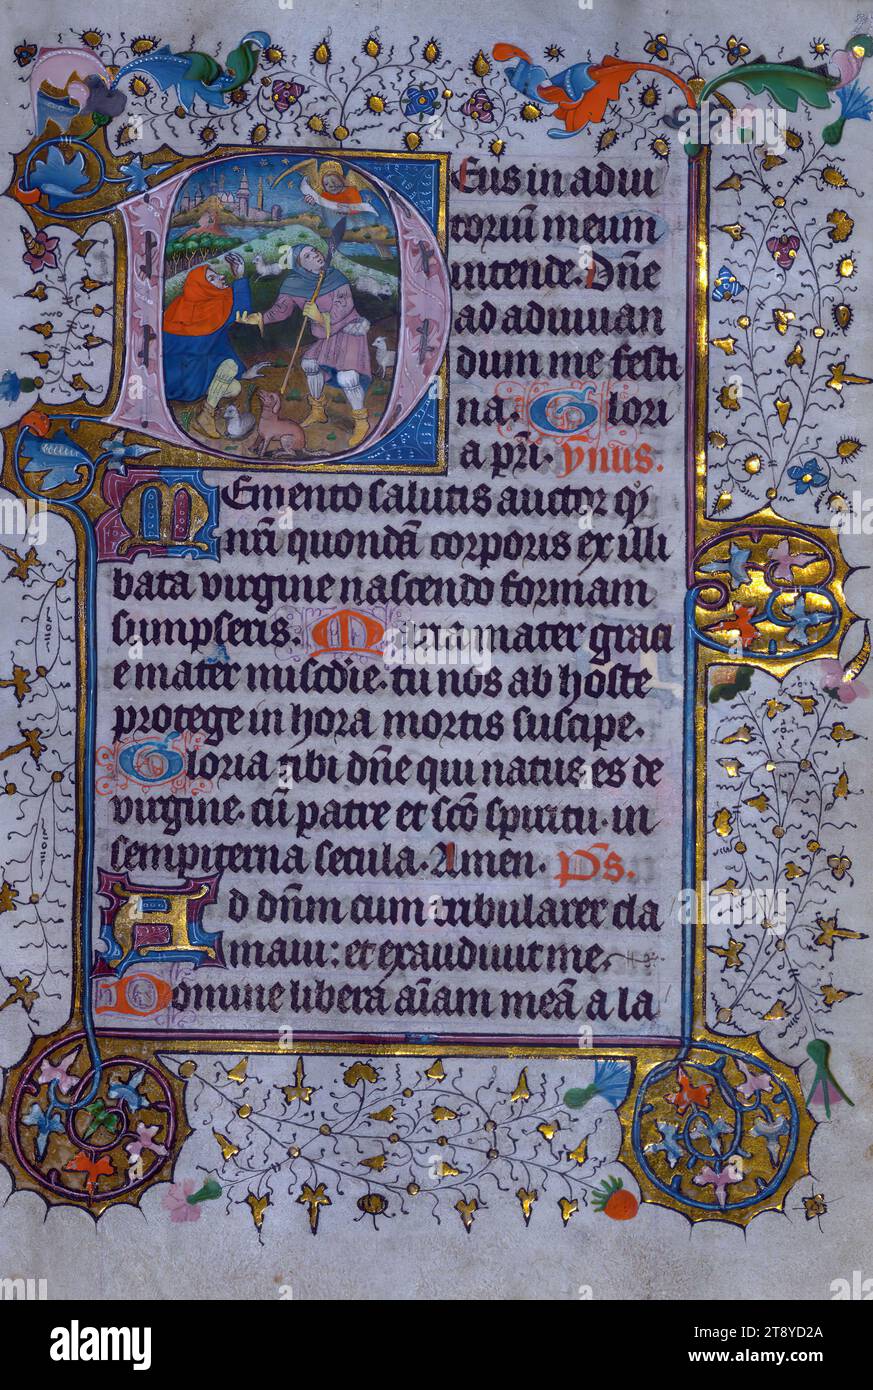 Deus in adiu
toriū meum
intende. Dñe
ad adiuuan
dum me festi
na. Glori
a pr̄i. ynus.
Memento salutis auctor q
nr̄i quondā corporis ex illi
bata virgine nascendo formam
sumpseris. Maria mater graci
e mater mis͞cdie. tu nos ab hoste
protege in hora mortis suscipe.
Gloria tibi dñe qui natus es de
virgine. cū patre et sc̄o spiritu. in
sempiterna secula. Amen. ps̄.
Ad dn̄m cum tribularer cla
maui: et exaudiuit me.
Domine libera aīam meā a la
alamy
Image ID: 2T8YD2A
www.alamy.com